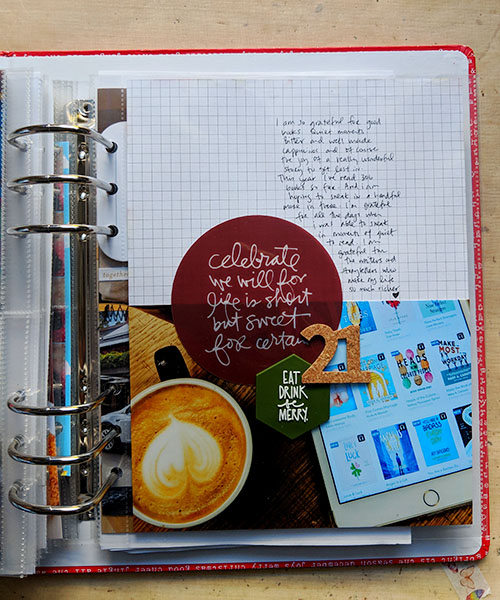 I am so grateful for good
books quiet moments
butter and well made
cappuccino and of course
the joy of a really wonderful
story to get lost in.
This year I've read 300
books so far. And I am
hoping to sneak in a handful
more in there. I'm grateful
for all the days when
I was able to sneak
in moments of quiet
to read. I am
grateful for
the writers and
storytellers who
make my life
so much richer
celebrate
we will for
life is short
but sweet
for certain
21
EAT
DRINK
be
MERRY.
together
HEADS
MAKE
MOST
WORKDAY
LUCK
BADASS